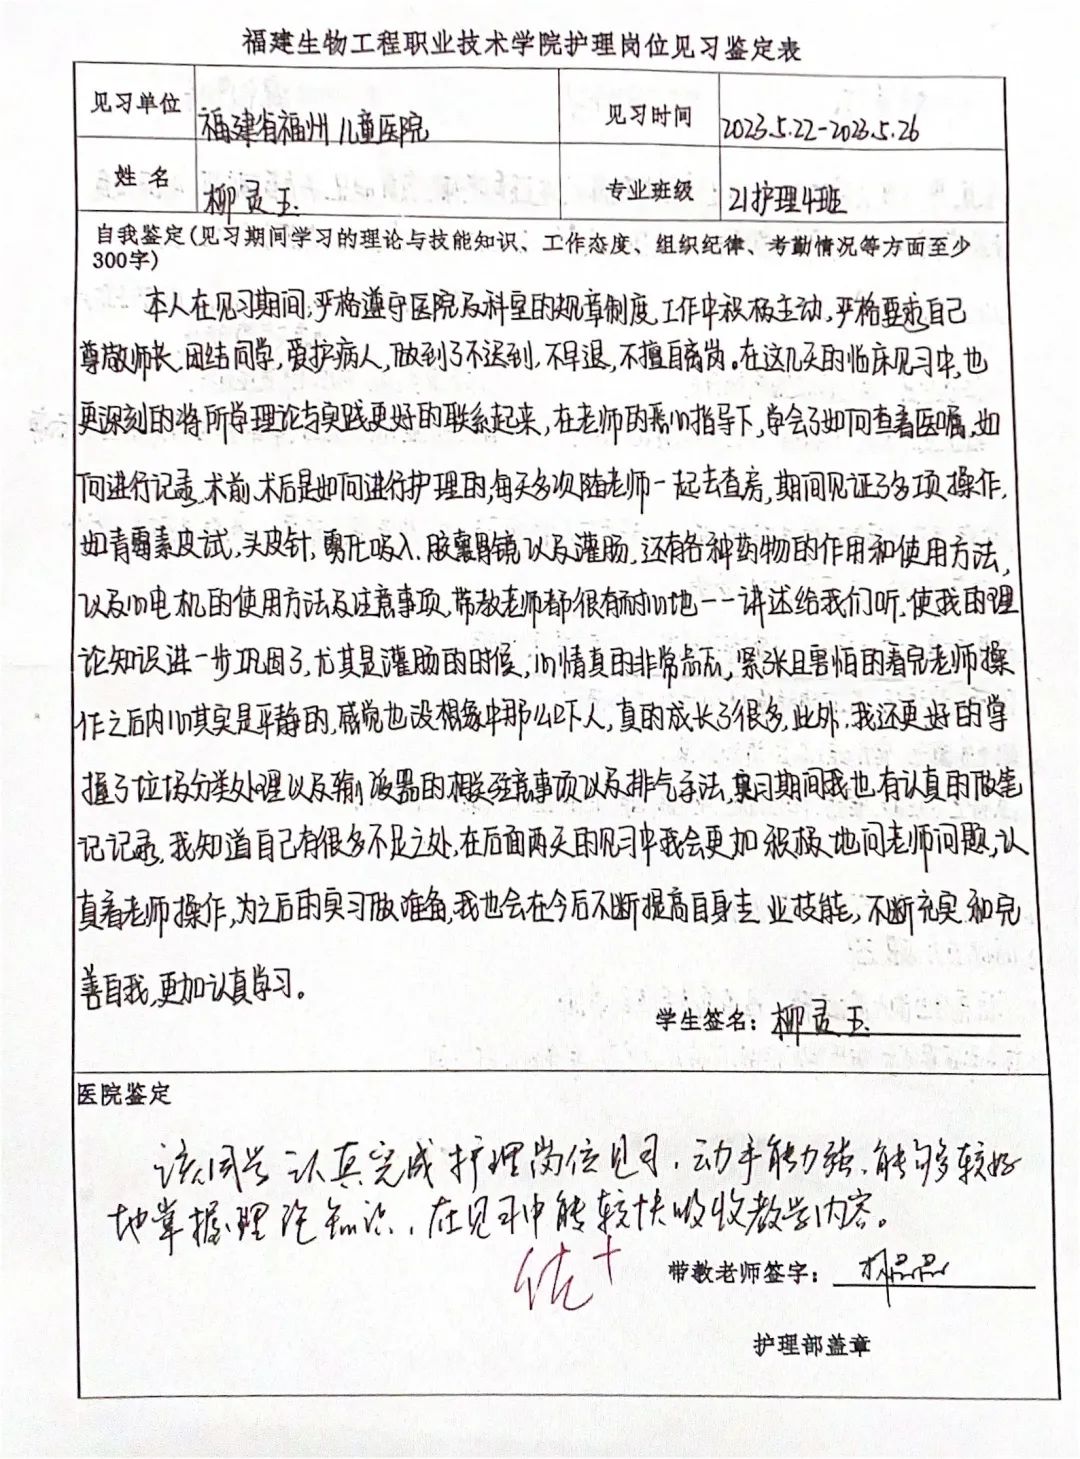 福建生物工程职业技术学院护理岗位见习鉴定表
见习单位 福建省福州儿童医院 见习时间 2023.5.22-2023.5.26
姓名 柳灵玉 专业班级 21护理4班
自我鉴定(见习期间学习的理论与技能知识、工作态度、组织纪律、考勤情况等方面至少
300字)
本人在见习期间,严格遵守医院及科室的规章制度,工作中积极主动,严格要求自己
尊敬师长,团结同学,爱护病人,做到了不迟到,不早退,不擅自离岗。在这几天的临床见习中,也
更深刻的将所学理论与实践更好的联系起来,在老师的悉心指导下,学会了如何查看医嘱,如
何进行记录,术前,术后是如何进行护理的,每天多次随老师一起去查房,期间见证了多项操作,
如青霉素皮试,头皮针,雾化吸入,胶囊胃镜以及灌肠,还有各种药物的作用和使用方法,
以及心电机的使用方法及注意事项,带教老师都很有耐心地一一讲述给我们听,使我的理
论知识进一步巩固了,尤其是灌肠的时候,心情真的非常忐忑,紧张且害怕的看完老师操
作之后内心其实是平静的,感觉也没想象中那么吓人,真的成长了很多,此外,我还更好的掌
握了垃圾分类处理以及输液器的相关注意事项以及排气手法,实习期间我也有认真的做笔
记记录,我知道自己有很多不足之处,在后面两天的见习中我会更加积极地问老师问题,认
真看老师操作,为之后的实习做准备,我也会在今后不断提高自身专业技能,不断充实和完
善自我,更加认真学习。
学生签名: 柳灵玉
医院鉴定
该同学认真完成护理岗位见习,动手能力强,能够较好
地掌握理论知识,在见习中能较快吸收教学内容。
优+
带教老师签字:
护理部盖章